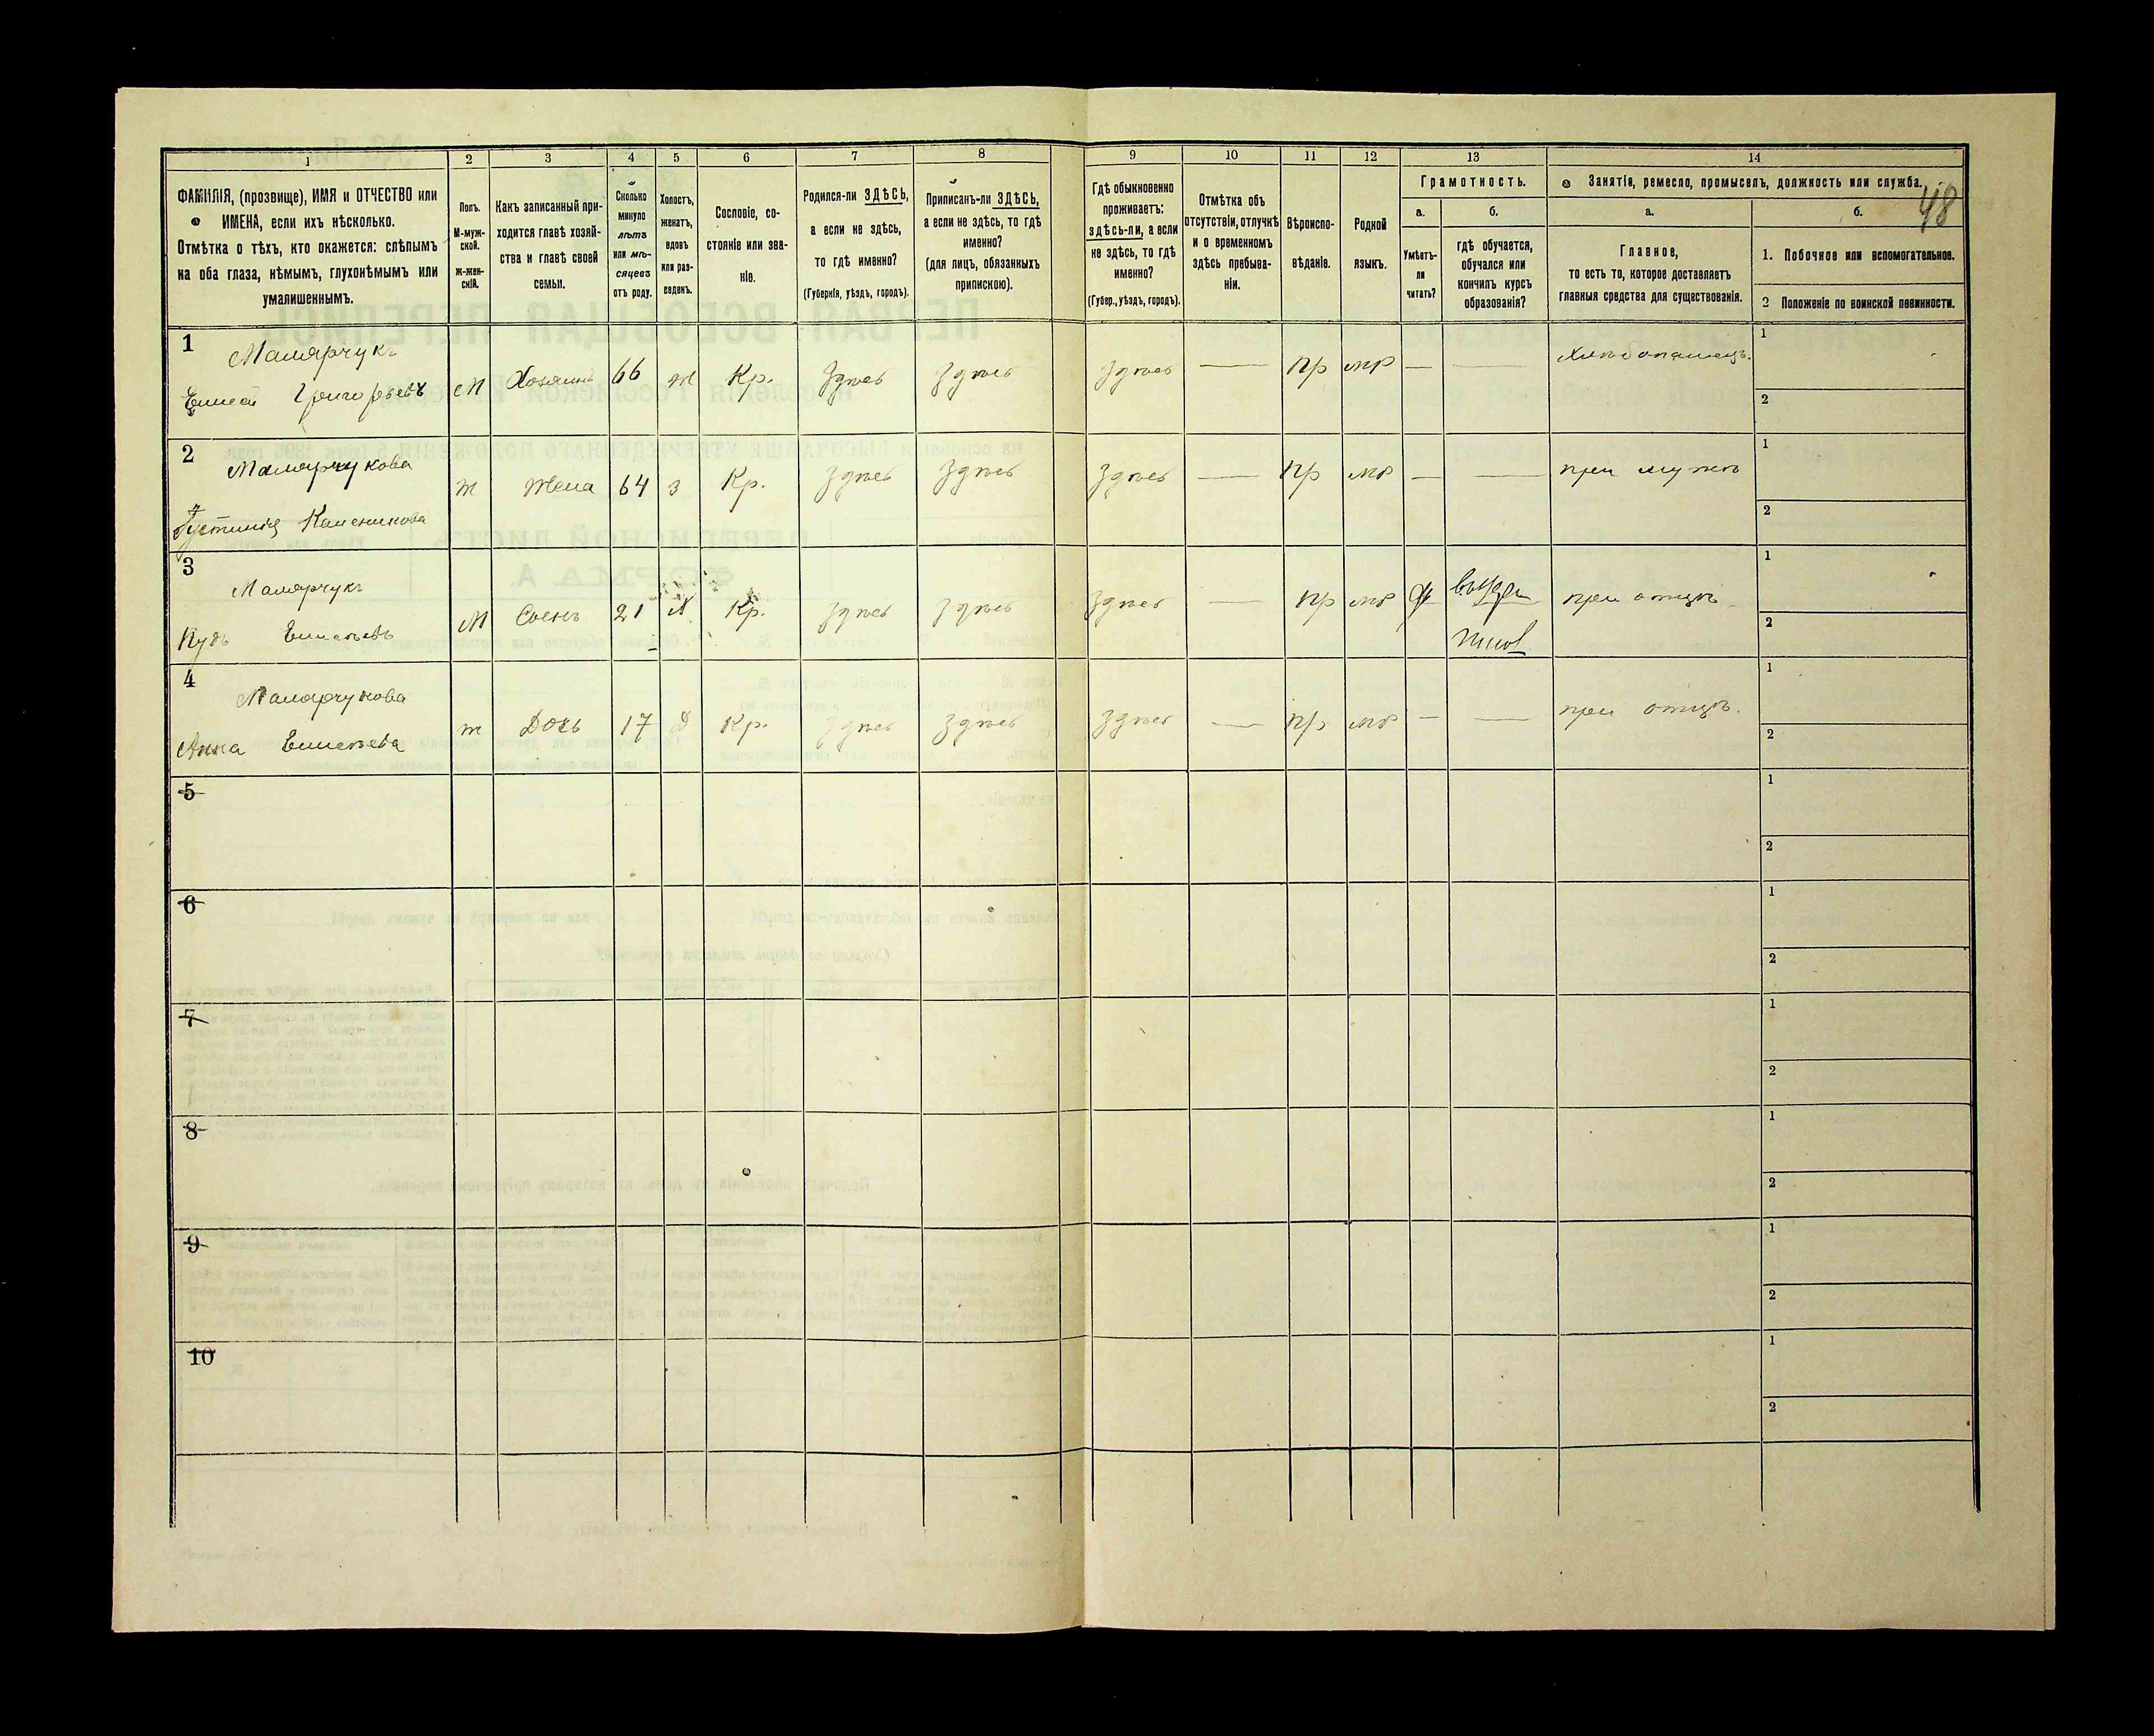 1 2 3 4 5 6 7 8 9 10 11 12 13 14
ФАМИЛІЯ, (прозвище), ИМЯ и ОТЧЕСТВО или
ИМЕНА, если ихъ нѣсколько.
Отмѣтка о тѣхъ, кто окажется: слѣпымъ
на оба глаза, нѣмымъ, глухонѣмымъ или
умалишеннымъ.
Полъ.
М-муж-
ской.
ж-жен-
скій.
Какъ записанный при-
ходится главѣ хозяй-
ства и главѣ своей
семьи.
Сколько
минуло
лѣтъ
или мѣ-
сяцевъ
отъ роду.
Холостъ,
женатъ,
вдовъ
или раз-
веденъ.
Сословіе, со-
стояніе или зва-
ніе.
Родился-ли ЗДѢСЬ,
а если не здѣсь,
то гдѣ именно?
(Губернія, уѣздъ, городъ).
Приписанъ-ли ЗДѢСЬ,
а если не здѣсь, то гдѣ
именно?
(для лицъ, обязанныхъ
припискою).
Гдѣ обыкновенно
проживаетъ:
здѣсь-ли, а если
не здѣсь, то гдѣ
именно?
(Губер., уѣздъ, городъ).
Отмѣтка объ
отсутствіи, отлучкѣ
и о временномъ
здѣсь пребыва-
ніи.
Вѣроиспо-
вѣданіе.
Родной
языкъ.
Грамотность.
а.
Умѣетъ-
ли
читать?
б.
гдѣ обучается,
обучался или
кончилъ курсъ
образованія?
Занятіе, ремесло, промыселъ, должность или служба.
48
а.
Главное,
то есть то, которое доставляетъ
главныя средства для существованія.
б.
1. Побочное или вспомогательное.
2 Положеніе по воинской повинности.
1 Малярчукъ
Елисей Григорьевъ
М Хозяинъ 66 ж Кр. Здѣсь Здѣсь Здѣсь — пр мр — — Хлѣбопашецъ. 1
2
2 Малярчукова
Устинія
ж жена 64 з Кр. Здѣсь Здѣсь Здѣсь — пр мр — — при мужѣ 1
2
3 Малярчукъ
Елисѣевъ
М Сынъ 21 х Кр. Здѣсь Здѣсь Здѣсь — пр мр при отцѣ 1
2
4 Малярчукова
Анна Елисѣева
ж Дочь 17 д Кр. Здѣсь Здѣсь Здѣсь — пр мр — — при отцѣ. 1
2
5 1
2
6 1
2
7 1
2
8 1
2
9 1
2
10 1
2